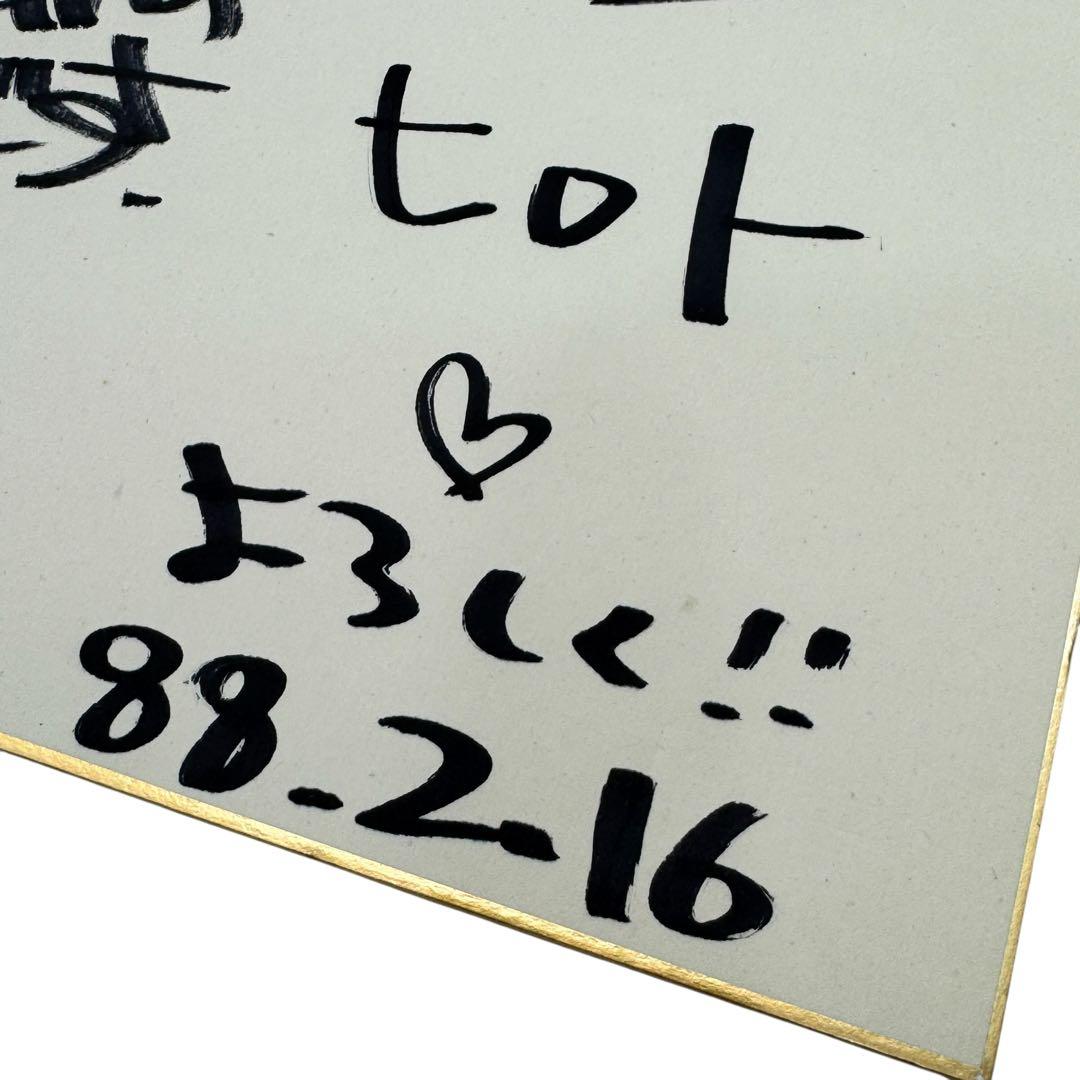 toト
♡
よろしく!!
88.2.16